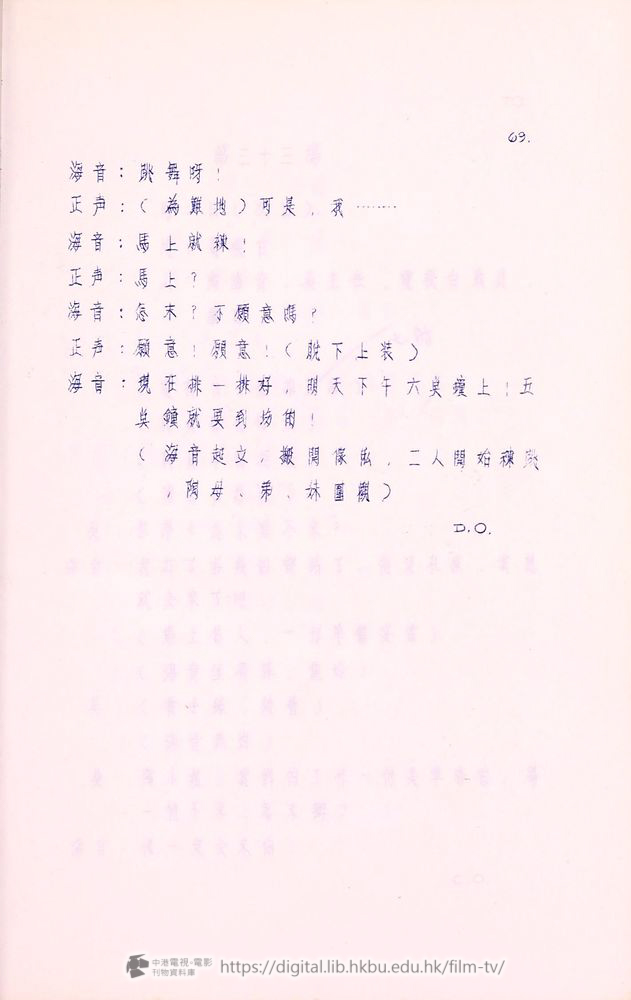 69.
海音：跳舞呀！
正声：（為難地）可是，我………
海音：馬上就練！
正声：馬上？
海音：怎末？不願意嗎？
正声：願意！願意！（脱下上装）
海音：現在排一排好，明天下午六奌檯上！五
奌鐘就要到場的！
（海音起立，搬開傢俬，二人開始練跳
，陶母、弟、妹圍觀）
D.O.
中港電視·電影
刊物資料庫
https://digital.lib.hkbu.edu.hk/film-tv/